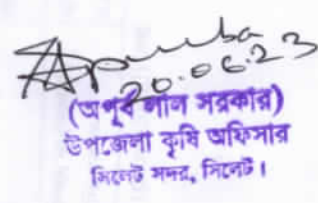 Apurba
20.06.23
(অপূর্ব লাল সরকার)
উপজেলা কৃষি অফিসার
সিলেট সদর, সিলেট।